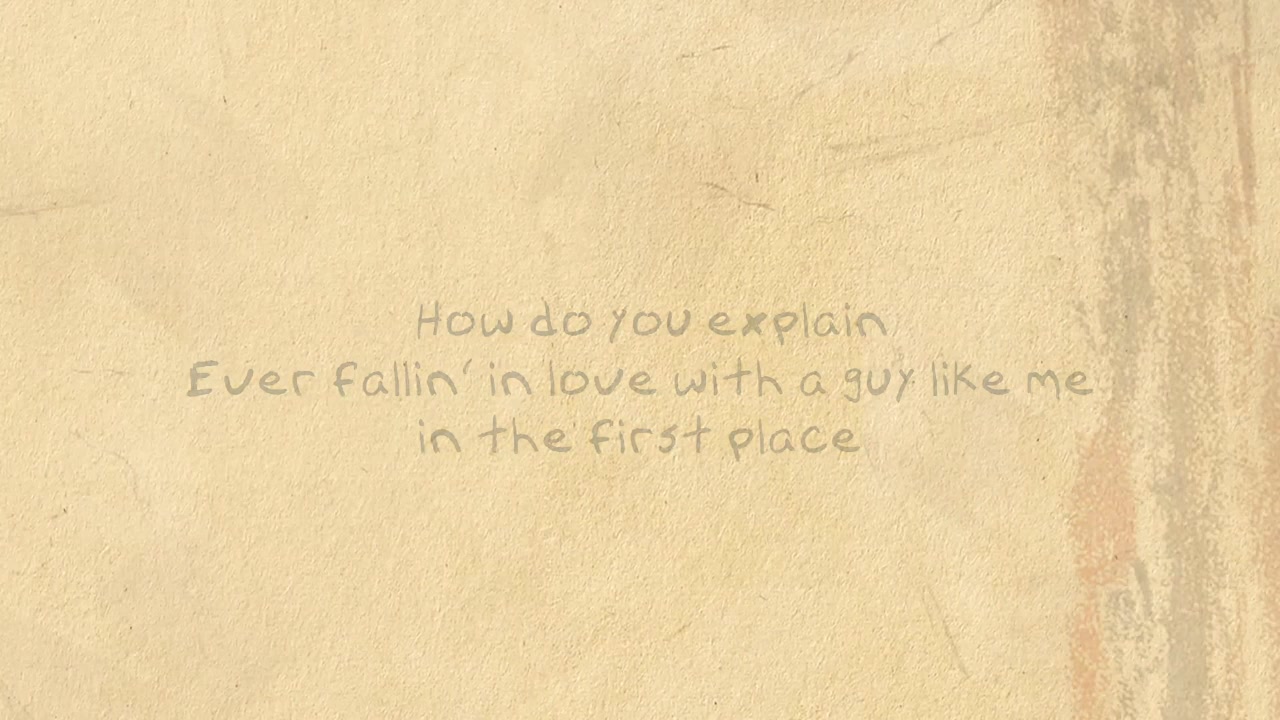 How do you explain
Ever fallin' in love with a guy like me
in the first place